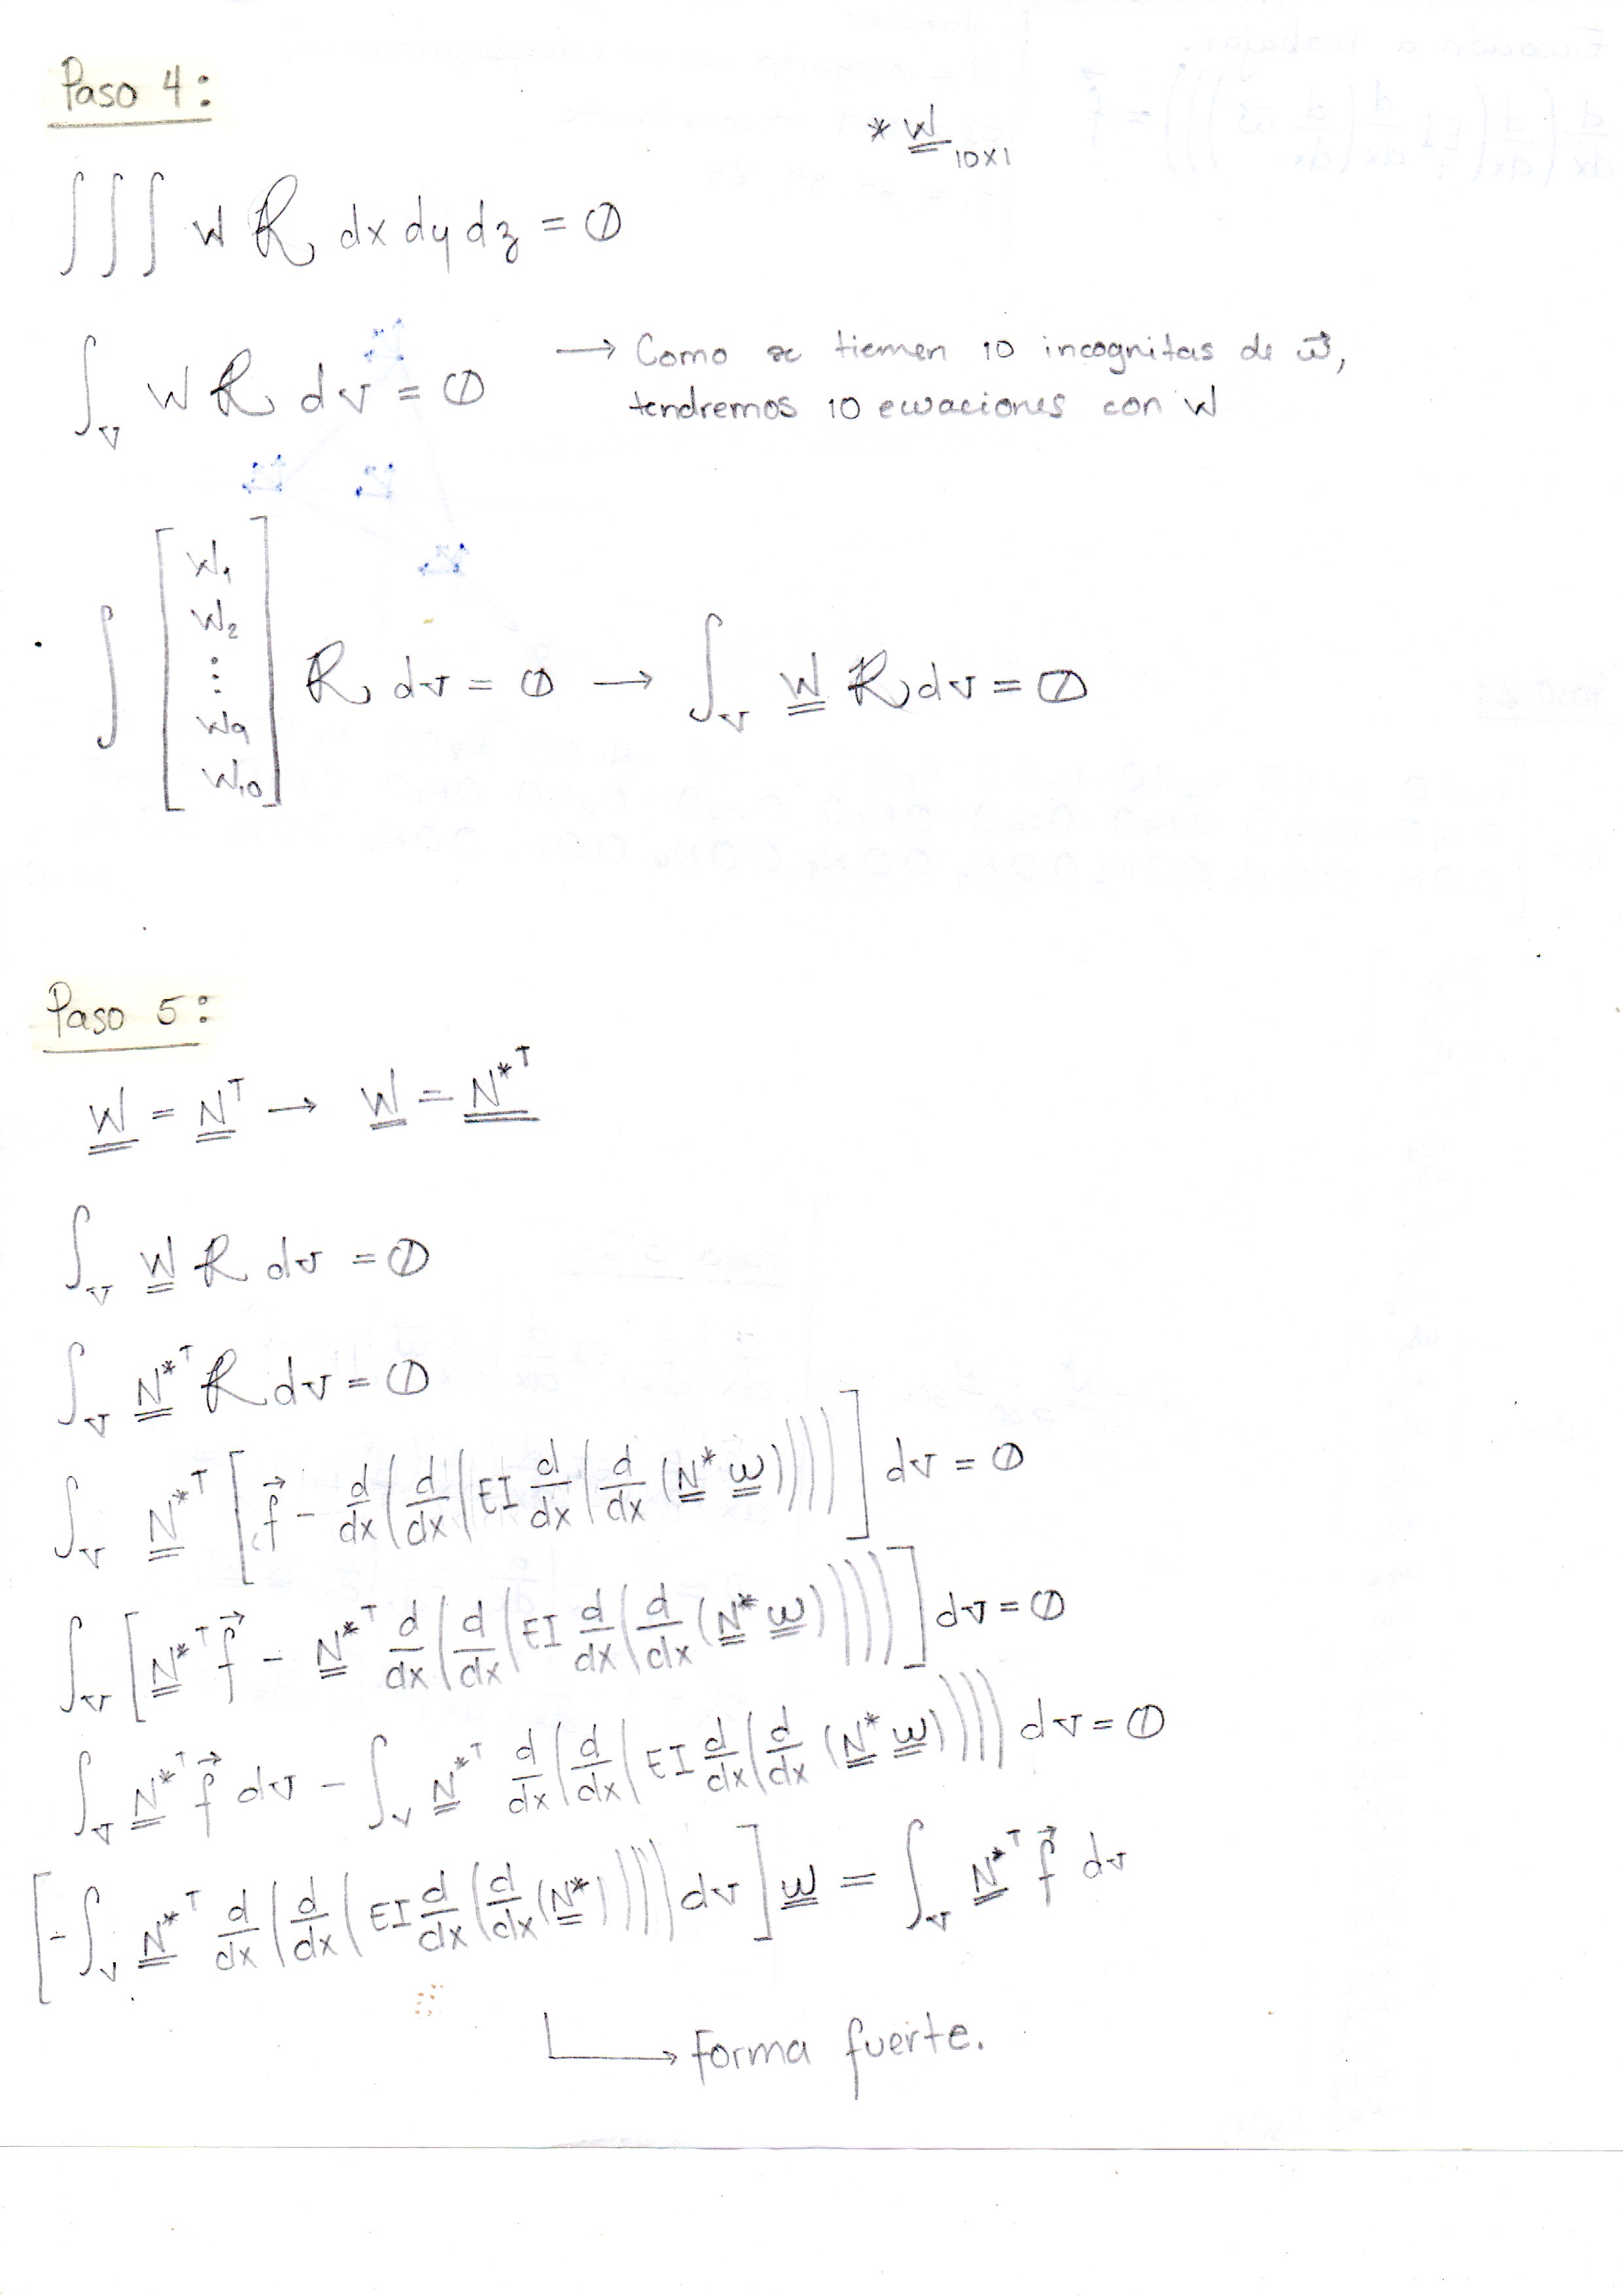 Paso 4:
* W 10x1
∫∫∫ W R dx dy dz = 0
∫_V W R dv = 0 → Como se tienen 10 incognitas de w⃗,
tendremos 10 ecuaciones con W
∫ [W1 W2 ⋮ W9 W10] R dv = 0 → ∫_V W R dv = 0
Paso 5:
W = N^T → W = N*^T
∫_V W R dv = 0
∫_V N*^T R dv = 0
∫_V N*^T [f⃗ - d/dx(d/dx(EI d/dx(d/dx (N* w))))] dv = 0
∫_V [N*^T f⃗ - N*^T d/dx(d/dx(EI d/dx(d/dx (N* w))))] dv = 0
∫_V N*^T f⃗ dv - ∫_V N*^T d/dx(d/dx(EI d/dx(d/dx (N* w)))) dv = 0
[-∫_V N*^T d/dx(d/dx(EI d/dx(d/dx(N*)))) dv] w = ∫_V N*^T f⃗ dv
→ Forma fuerte.